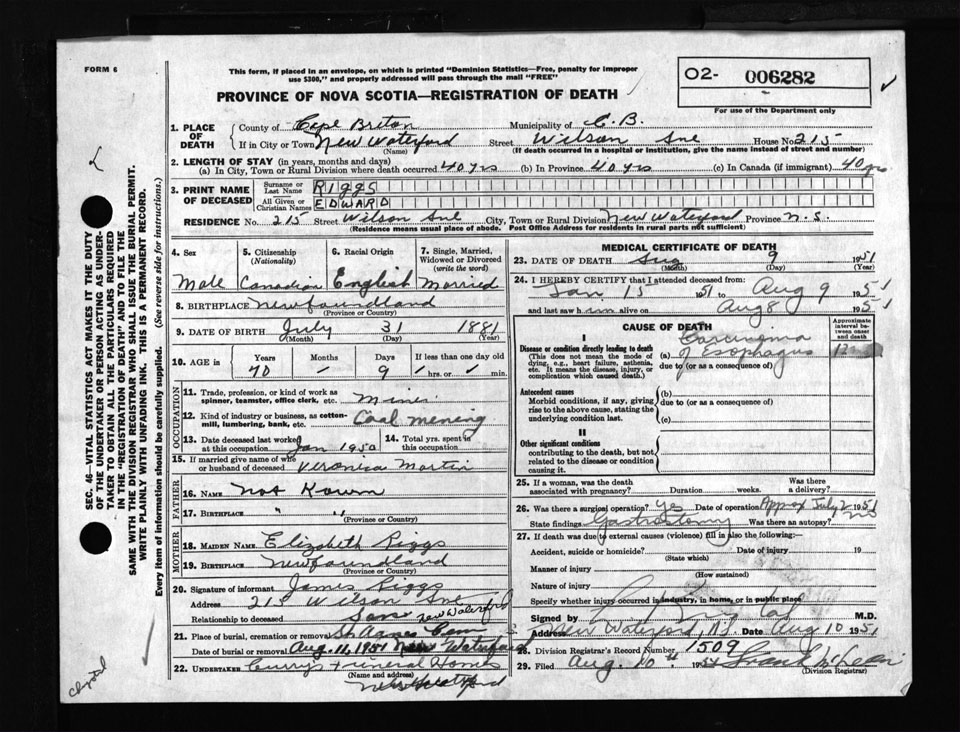 FORM 6
This form, if placed in an envelope, on which is printed "Dominion Statistics—Free, penalty for improper
use $300," and properly addressed will pass through the mail "FREE"
PROVINCE OF NOVA SCOTIA—REGISTRATION OF DEATH
O2- 006282
For use of the Department only
SEC. 46—VITAL STATISTICS ACT MAKES IT THE DUTY
OF THE UNDERTAKER OR PERSON ACTING AS UNDER-
TAKER TO OBTAIN ALL THE PARTICULARS REQUIRED
IN THE "REGISTRATION OF DEATH" AND TO FILE THE
SAME WITH THE DIVISION REGISTRAR WHO SHALL ISSUE THE BURIAL PERMIT.
WRITE PLAINLY WITH UNFADING INK. THIS IS A PERMANENT RECORD.
Every item of information should be carefully supplied. (See reverse side for instructions.)
1. PLACE OF DEATH
County of Cape Breton Municipality of C.B.
If in City or Town New Waterford Street Wilson Ave House No. 215
(Name) (If death occurred in a hospital or institution, give the name instead of street and number)
2. LENGTH OF STAY (in years, months and days)
(a) In City, Town or Rural Division where death occurred 40 yrs (b) In Province 40 yrs (c) In Canada (if immigrant) 40 yrs
3. PRINT NAME OF DECEASED
Surname or Last Name RIGGS
All Given or Christian Names EDWARD
RESIDENCE No. 215 Street Wilson Ave City, Town or Rural Division New Waterford Province N.S.
(Residence means usual place of abode. Post Office Address for residents in rural parts not sufficient)
4. Sex
Male
5. Citizenship (Nationality)
Canadian
6. Racial Origin
English
7. Single, Married, Widowed or Divorced (write the word)
Married
8. BIRTHPLACE Newfoundland
(Province or Country)
9. DATE OF BIRTH July 31 1881
(Month) (Day) (Year)
10. AGE in
Years Months Days If less than one day old
70 / 9 / hrs. or / min.
OCCUPATION
11. Trade, profession, or kind of work as
spinner, teamster, office clerk, etc. Miner
12. Kind of industry or business, as cotton-
mill, lumbering, bank, etc. Coal mening
13. Date deceased last worked
at this occupation Jan 1950
14. Total yrs. spent in
this occupation
15. If married give name of wife
or husband of deceased Veronica Martin
FATHER
16. NAME Not Kown
17. BIRTHPLACE " "
(Province or Country)
MOTHER
18. MAIDEN NAME Elizabeth Riggs
19. BIRTHPLACE Newfoundland
(Province or Country)
20. Signature of informant James Riggs
Address 215 Wilson Ave New Waterford
Relationship to deceased Son
21. Place of burial, cremation or removal St Agnes Cem
Date of burial or removal Aug. 11, 1951 New Waterford
22. UNDERTAKER Curry's Funeral Home
(Name and address)
New Waterford
MEDICAL CERTIFICATE OF DEATH
23. DATE OF DEATH Aug 9 1951
(Month) (Day) (Year)
24. I HEREBY CERTIFY that I attended deceased from:
Jan 15 1951 to Aug 9 1951
and last saw him alive on Aug 8 1951
CAUSE OF DEATH
Approximate interval between onset and death
I
Disease or condition directly leading to death
(This does not mean the mode of
dying, e.g., heart failure, asthenia,
etc. It means the disease, injury, or
complication which caused death.)
(a) Carcinoma of Esophagus
due to (or as a consequence of)
Antecedent causes
Morbid conditions, if any, giving
rise to the above cause, stating the
underlying condition last.
(b)
due to (or as a consequence of)
(c)
II
Other significant conditions
contributing to the death, but not
related to the disease or condition
causing it.
25. If a woman, was the death
associated with pregnancy? Duration weeks. Was there a delivery?
26. Was there a surgical operation? Yes Date of operation Approx July 2 1951
State findings Gastrostomy Was there an autopsy?
27. If death was due to external causes (violence) fill in also the following:
Accident, suicide or homicide? Date of injury 19
(State which)
Manner of injury
(How sustained)
Nature of injury
Specify whether injury occurred in industry, in home, or in public place
Signed by M.D.
Address New Waterford, N.S. Date Aug 10 1951
28. Division Registrar's Record Number 1509
29. Filed Aug. 10th 1951 Frank McLean
(Division Registrar)